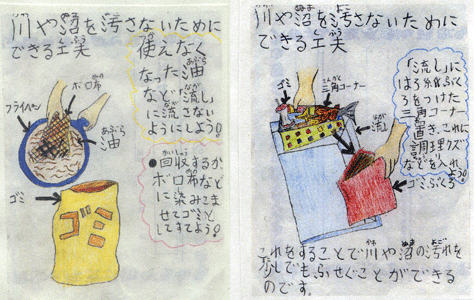 川や沼を汚さないために
できる工夫
使えなく
なった油
など「流し」
に流さない
ようにしよう!
ボロ布
フライパン
油
あぶら
●回収するか
ボロ布など
に染みこま
せてゴミと
してすてよう!
ゴミ
ゴミ
川や沼を汚さないために
できる工夫
ゴミ
三角コーナー
流し
「流し」に
はろ紙ぶく
ろをつけた
三角コーナー
を置き、これに
調理クズ
などを入れ
よう!
ゴミぶくろ
これをすることで川や沼の汚れを
少しでもふせぐことができる
のです。